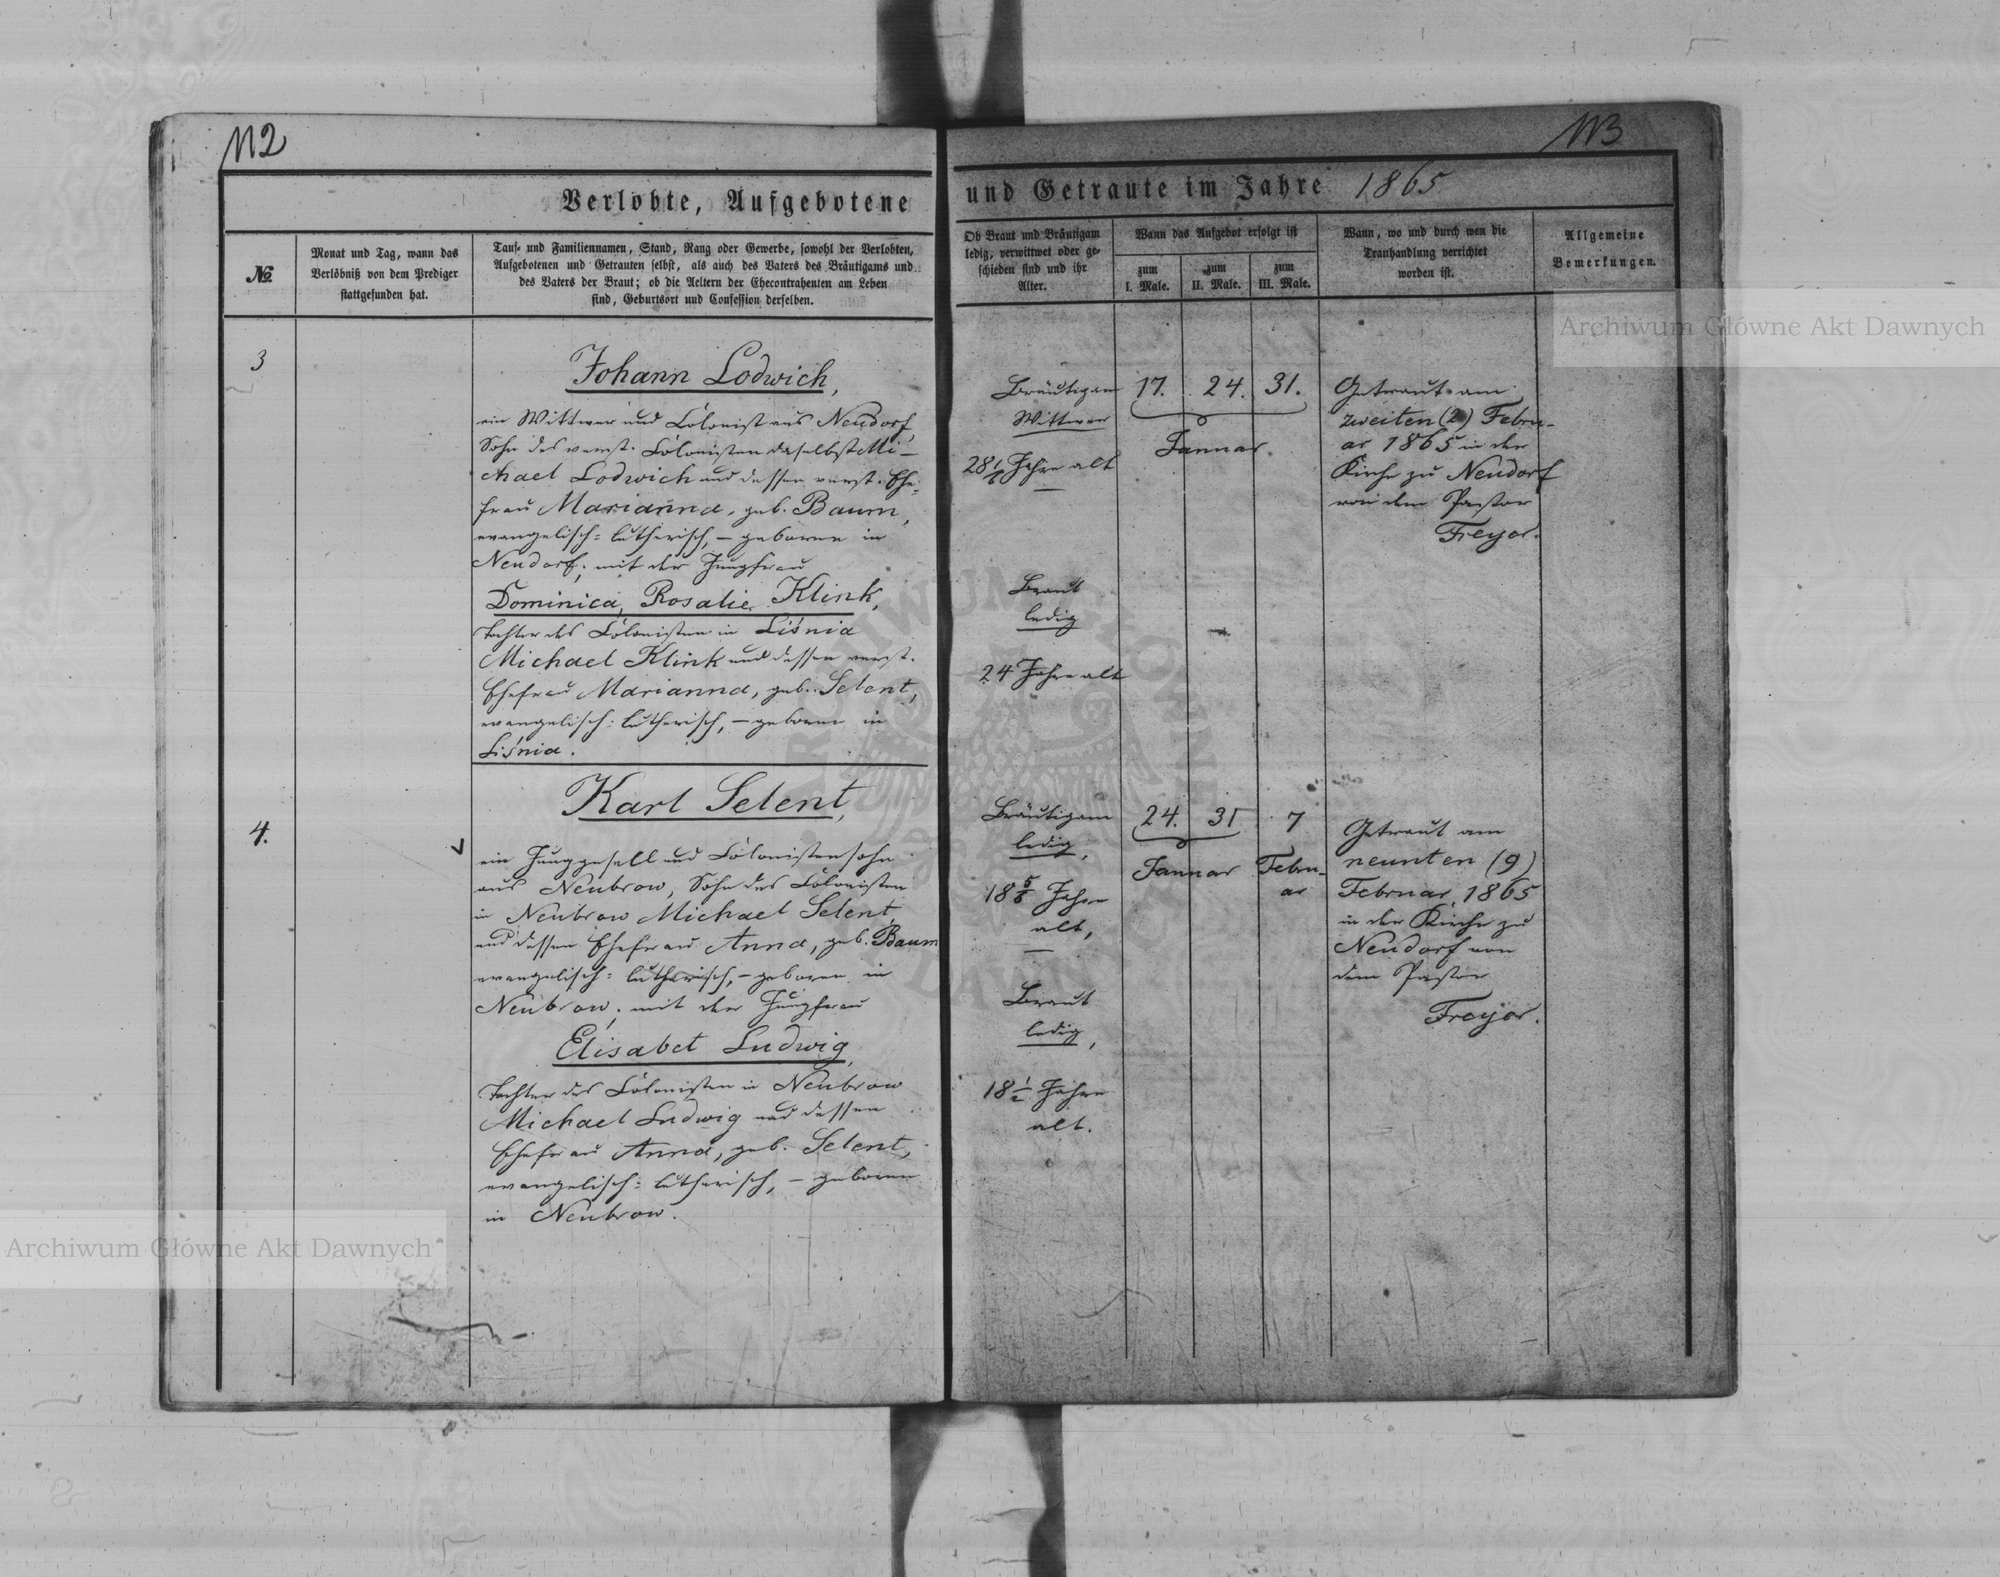 112
113
Verlobte, Aufgebotene
und Getraute im Jahre 1865
№
Monat und Tag, wann das
Verlöbniß von dem Prediger
stattgefunden hat.
Tauf- und Familiennamen, Stand, Rang oder Gewerbe, sowohl der Verlobten,
Aufgebotenen und Getrauten selbst, als auch des Vaters des Bräutigams und
des Vaters der Braut; ob die Aeltern der Ehecontrahenten am Leben
sind, Geburtsort und Confession derselben.
Ob Braut und Bräutigam
ledig, verwittwet oder ge-
schieden sind und ihr
Alter.
Wann das Aufgebot erfolgt ist
zum
I. Male.
zum
II. Male.
zum
III. Male.
Wann, wo und durch wen die
Trauhandlung verrichtet
worden ist.
Allgemeine
Bemerkungen.
3
Johann Lodwich,
ein Wittwer und Colonist aus Neudorf,
Sohn des verst. Colonisten daselbst Mi-
chael Lodwich und dessen verst. Ehe-
frau Marianna, geb. Baum,
evangelisch-lutherisch, – geboren in
Neudorf; mit der Jungfrau
Dominica, Rosalie Klink,
Tochter des Colonisten in Liśnia
Michael Klink und dessen verst.
Ehefrau Marianna, geb. Selent,
evangelisch-lutherisch, – geboren in
Liśnia.
Bräutigam
Wittwer
28 Jahre alt
Braut
ledig
24 Jahre alt
17. 24. 31.
Januar.
Getraut am
zweiten (2) Febru-
ar 1865 in der
Kirche zu Neudorf
von dem Pastor
Freyer.
4.
Karl Selent,
ein Junggesell und Colonistensohn
aus Neubrow, Sohn des Colonisten
in Neubrow Michael Selent
und dessen Ehefrau Anna, geb. Baum
evangelisch-lutherisch, – geboren in
Neubrow; mit der Jungfrau
Elisabet Ludwig,
Tochter des Colonisten in Neubrow
Michael Ludwig und dessen
Ehefrau Anna, geb. Selent,
evangelisch-lutherisch, – geboren
in Neubrow.
Bräutigam
ledig,
18 5/6 Jahre
alt,
Braut
ledig,
18 1/2 Jahre
alt.
24. 31 7
Januar Febru-
ar
Getraut am
neunten (9)
Februar, 1865
in der Kirche zu
Neudorf von
dem Pastor
Freyer.
Archiwum Główne Akt Dawnych
Archiwum Główne Akt Dawnych